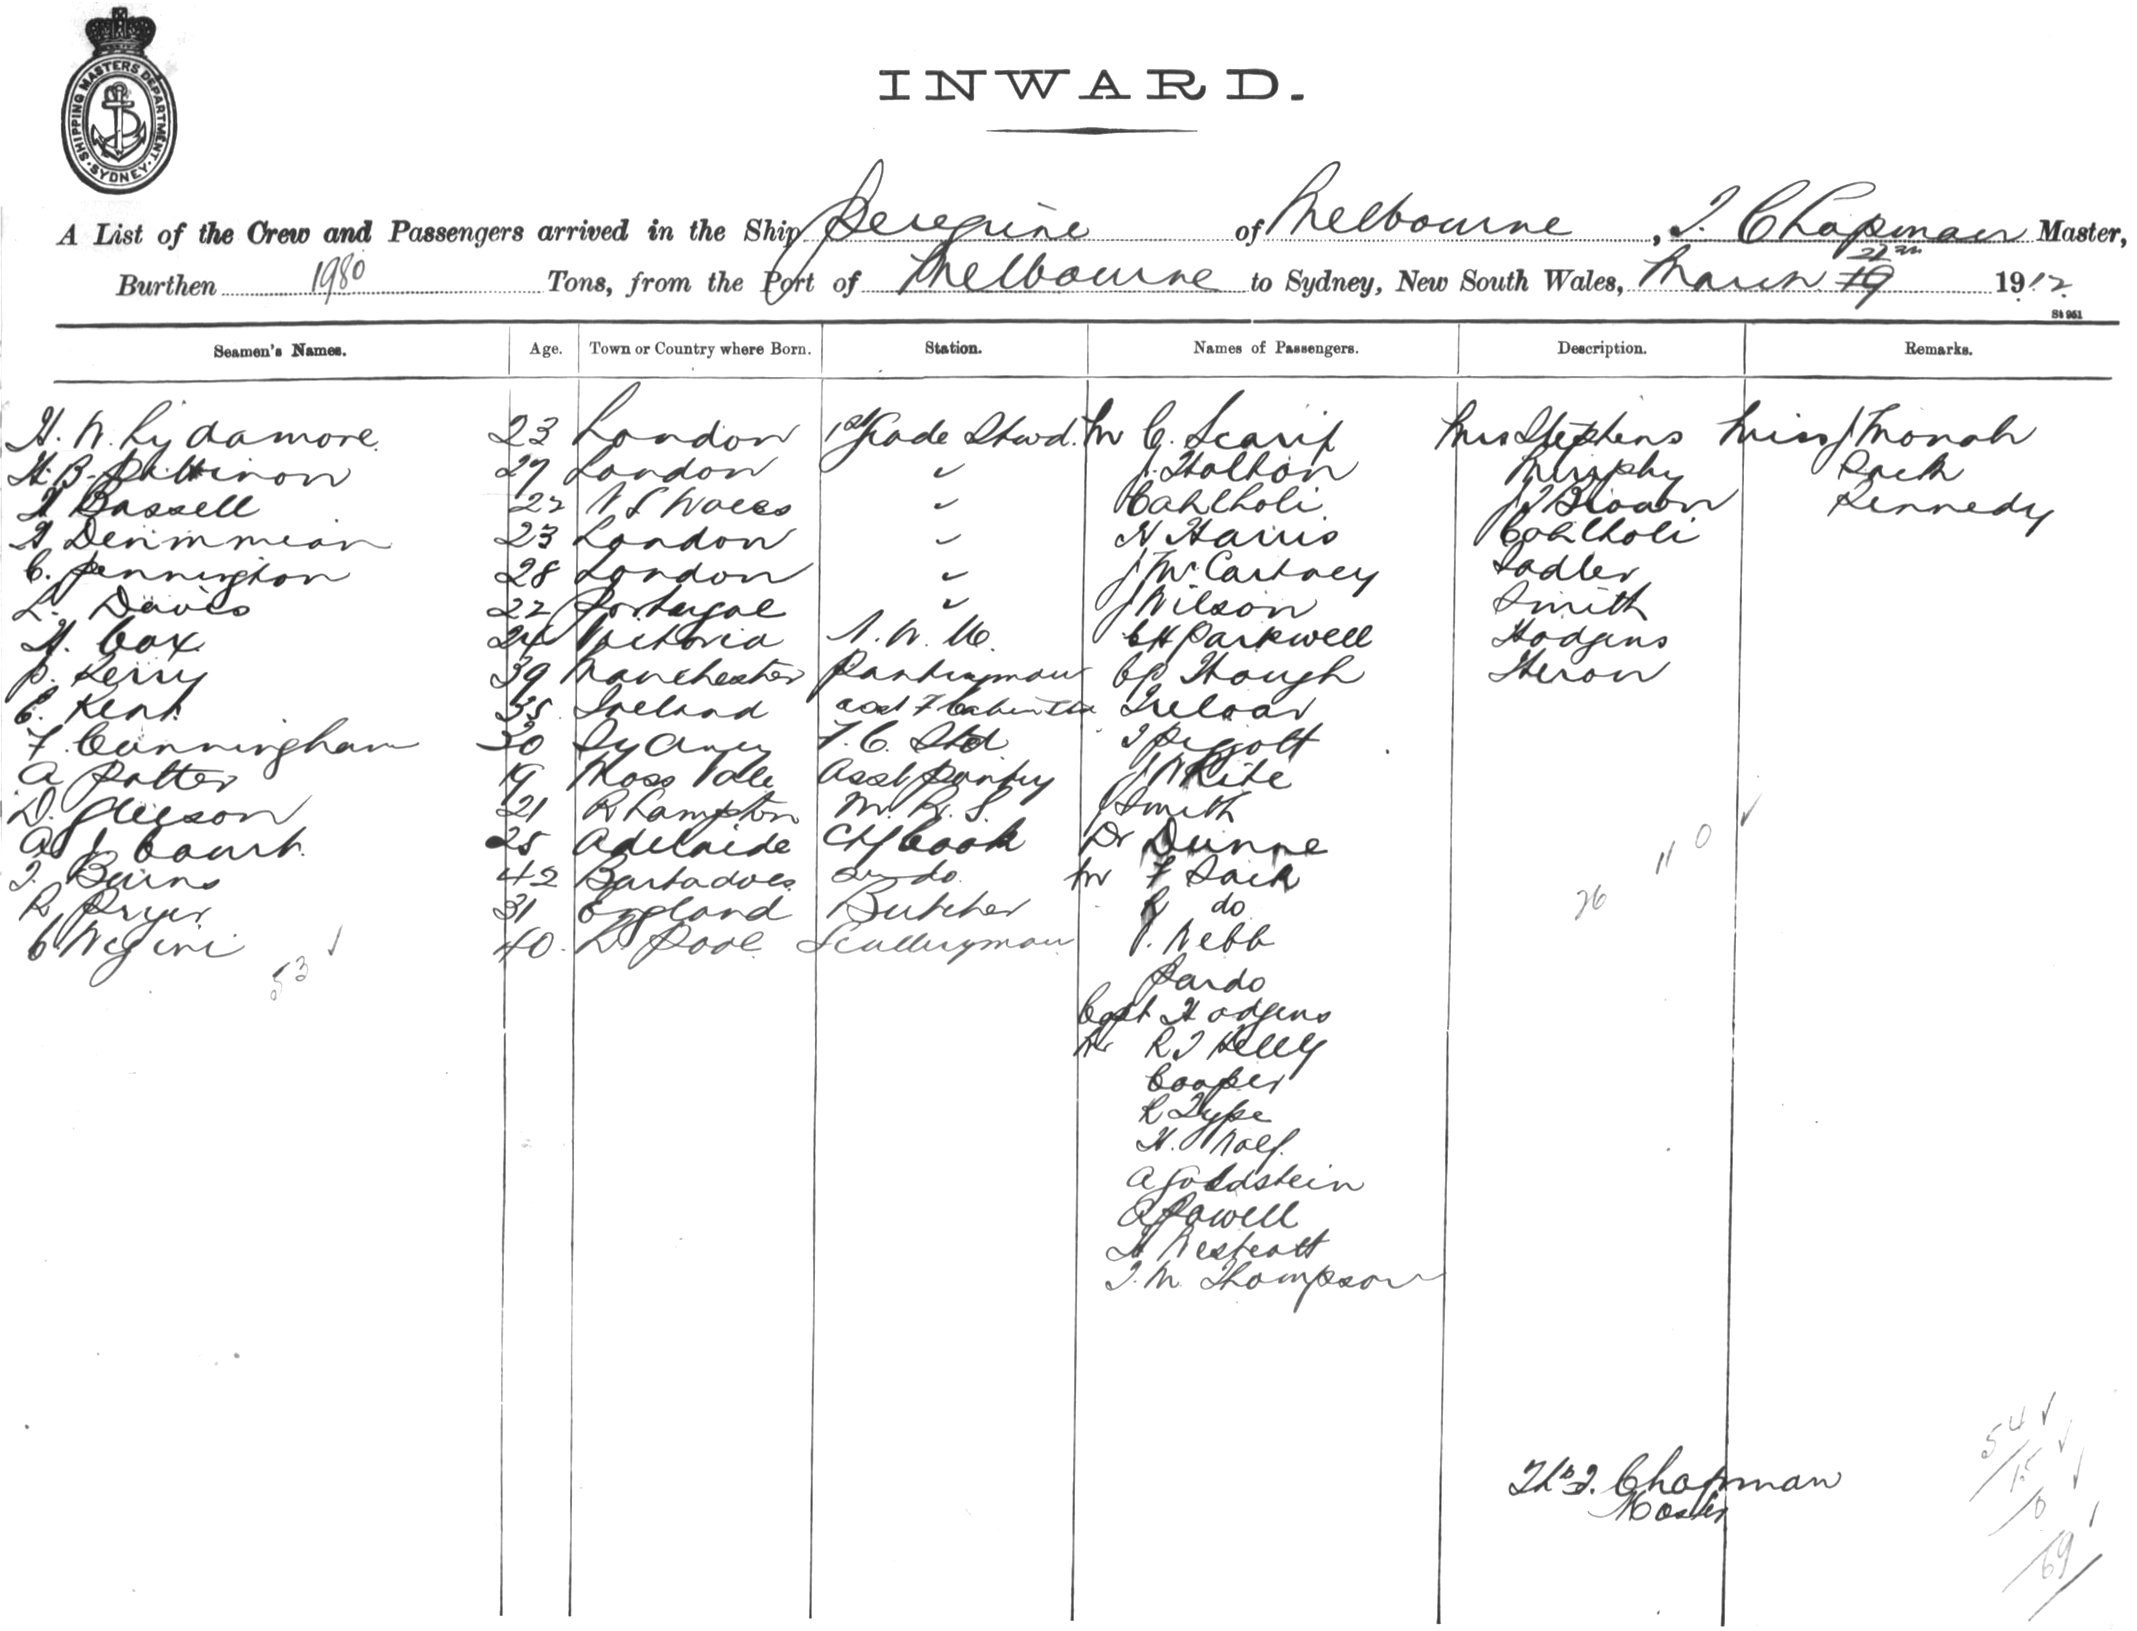 SHIPPING MASTERS DEPARTMENT
SYDNEY
INWARD.
A List of the Crew and Passengers arrived in the Ship Peregrine of Melbourne, T. Chapman Master,
Burthen 1980 Tons, from the Port of Melbourne to Sydney, New South Wales, March 19 21st 1912
St 951
Seamen's Names. Age. Town or Country where Born. Station. Names of Passengers. Description. Remarks.
H. W. Lydamore 23 London 1st Grade Stwd. Mr C. Mrs Stephens Miss J Monah
H. B. 27 London " J. Holton Murphy
H Bassell 22 N S Wales " Cahlholi Brown Kennedy
H 23 London " N Harris Cahlholi
C. Pennington 28 London " J McCartney Sadler
L. Davis 22 Portugal " J Wilson Smith
H. Cox 24 Victoria C H Parkwell Hodgens
P. Kerry 39 Manchester Pantryman C P Hough Heron
C. Kent 35 Ireland Treloar
F. Cunningham 30 Sydney F. C. Std T Piggott
A Potter 19 Moss Vale Asst Pantry J White
D. Gleeson 21 R Hampton M. R. S. J Smith
A J Court 25 Adelaide Chf Cook Dr Dunne
T. Burns 42 Barbadoes 2nd do Mr F Sack
R Pryer 31 England Butcher R do
C 40 L Pool Sculleryman J. Webb
53
Pardo
Capt Hodgens
Mr R J Kelly
Cooper
R Type
H. Wolf
A Goldstein
A Powell
H Westcott
T. M. Thompson
11 0
26
Thos T. Chapman
Master
54
15
0
69